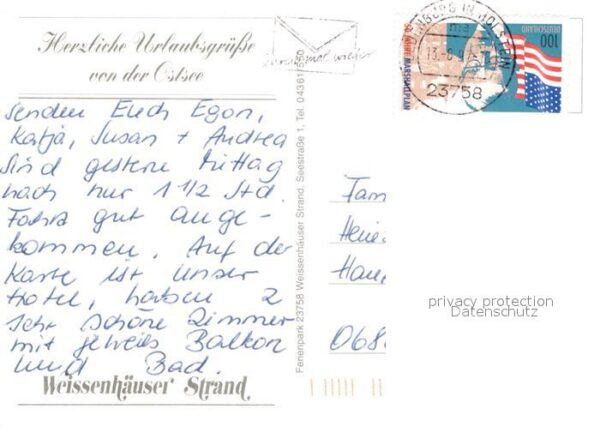 Herzliche Urlaubsgrüße
von der Ostsee
senden Euch Egon,
Katja, Susan + Andrea
Sind gestern Mittag
nach nur 1 1/2 Std.
Fahrt gut ange-
kommen. Auf der
Karte ist unser
Hotel, haben 2
sehr schöne Zimmer
mit jeweils Balkon
und Bad.
Weissenhäuser Strand
Ferienpark 23758 Weissenhäuser Strand, Seestraße 1, Tel.
mal wieder
IN HOLSTEIN
23758
DEUTSCHLAND
100
50 JAHRE MARSHALLPLAN
Fam
Hein
Hau
068
privacy protection
Datenschutz